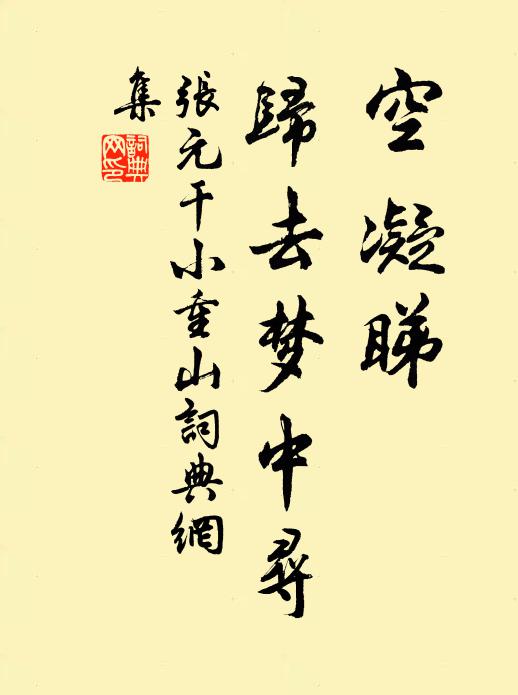 空凝睇
歸去梦中尋
張元干小重山詞典網
集
詞典網印